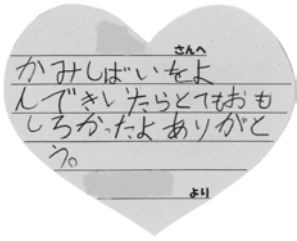 さんへ
かみしばいをよ
んできいたらとてもおも
しろかったよありがと
う。
より